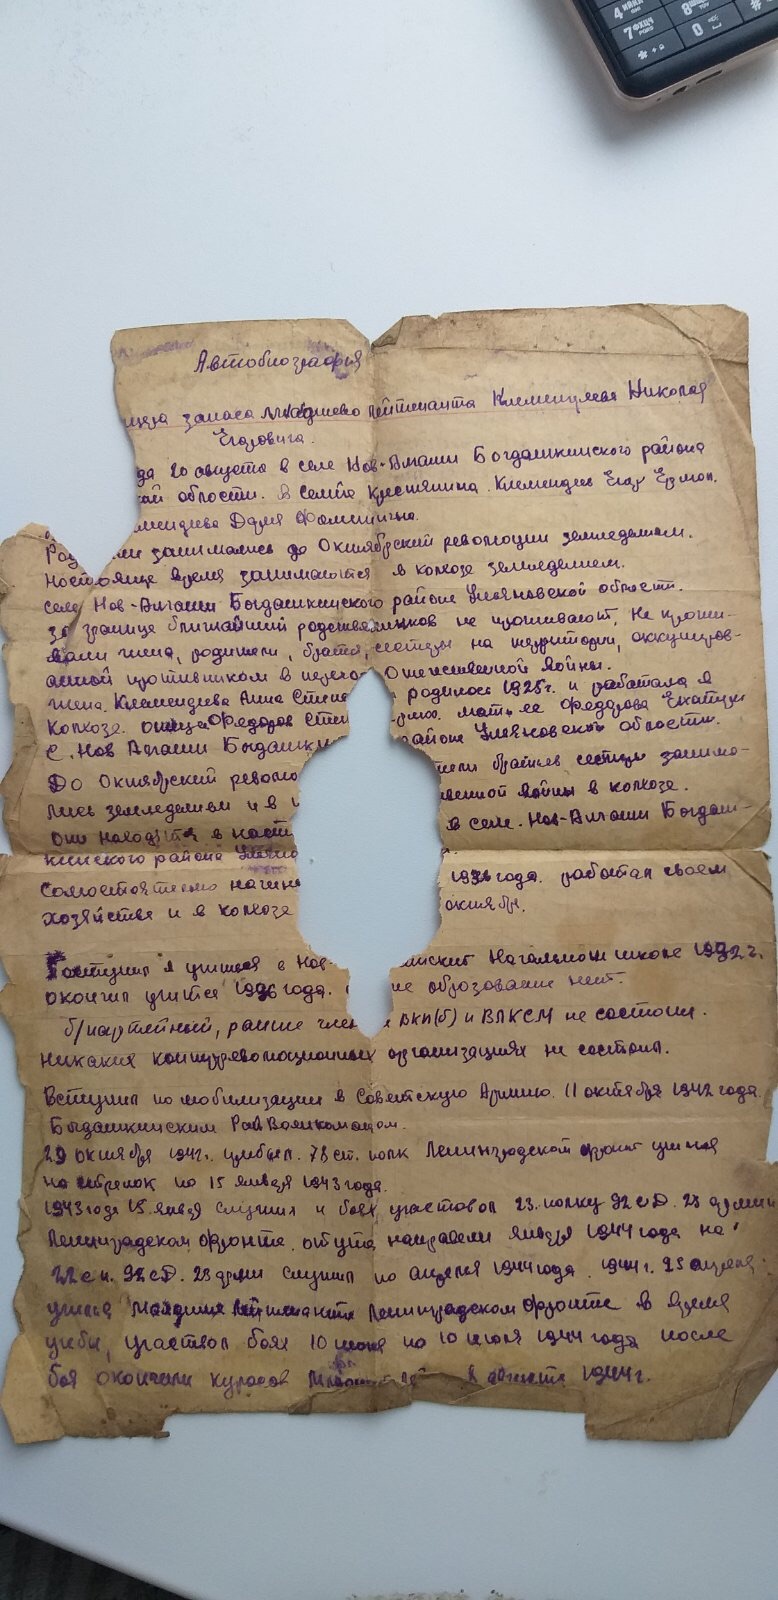 Автобиография
запаса младшево лейтенанта Клементьева Николая
Егоровича.
да 20 августа в селе Нов-Алгаши Богдашкинского района
кой области. в семье крестьянина. Клементьев Егор
ментьева Дарья
занимались до Октябрской революции земледелием.
настояще время занимаются в колхозе земледелием.
село Нов-Алгаши Богдашкинского районе Ульяновской области.
за границе ближайший родственников не проживают, Не прожи-
вали жена, родители, братья, сестры на территории, оккупиров-
анной противником в период Отечественной войны.
жена. Клементьева Анна родилось 1925г. и работала в
колхозе. отец Федоров мать ее Федорова
с. Нов Алгаши Богдашк районе Ульяновской области.
До Октябрский револю братьев сестры занима-
лись земледелием и в венной войны в колхозе.
они находятся в наст в селе. Нов-Алгаши Богдаш-
кинского района Ульяно
самостоятельно начина года. работал своем
хозяйстве и в колхозе октябр.
Поступил я учится в Нов- Начальном школе 1932 г.
окончил учится 1936 года. образование нет.
б/партейный, раньше член ВКП(б) и ВЛКСМ не состоял.
никаких контрреволюционных организациях не состоял.
Вступил по мобилизации в Советскую Армию. 11 октября 1942 года.
Богдашкинским РайВоенкоматом.
29 октября 1942г. прибыл. 78 полк Ленинградской фронт учился
на стрелок по 15 января 1943 года.
1943 годе 15. января служил и боях участвовал 23. полку 92 сД. 23 армии
Ленинградском фронте. оттута направели январ 1944 года на
22 с п. 92 сД. 23 арми служил по апреля 1944 года. 1944 г. 25 апреля
учился младшие лейтенанте Ленинградском фронте в время
учебы, участвол боях 10 июня по 10 июля 1944 года после
боя окончили курсов в августе 1944 г.
4 7 8 0 * #